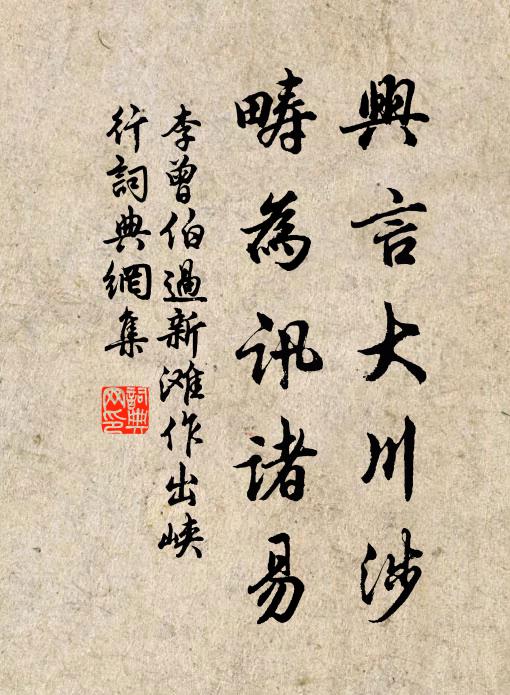 興言大川涉
疇為訊諸易
李曾伯過新灘作出峽
行詞典網集
詞典
网印